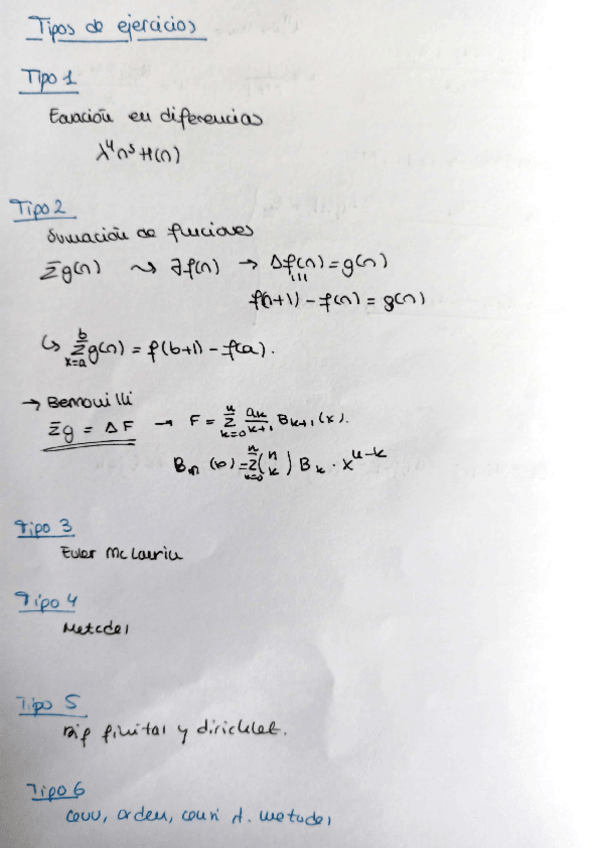 Tipos de ejercicios
Tipo 1
Ecuación en diferencias
λⁿ nˢ H(n)
Tipo 2
Sumación de funciones
Σg(n) ⇝ ∃f(n) → Δf(n) = g(n)
f(n+1) - f(n) = g(n)
↳ Σ_{x=a}^{b} g(n) = f(b+1) - f(a).
→ Bernouilli
Σg = ΔF → F = Σ_{k=0}^{n} a_k/(k+1) B_{k+1}(x).
B_n(x) = Σ_{k=0}^{n} (n k) B_k · x^{n-k}
Tipo 3
Euler McLaurin
Tipo 4
Metodos
Tipo 5
Dif finitas y dirichlet.
Tipo 6
Conv, orden, consi d. metodos